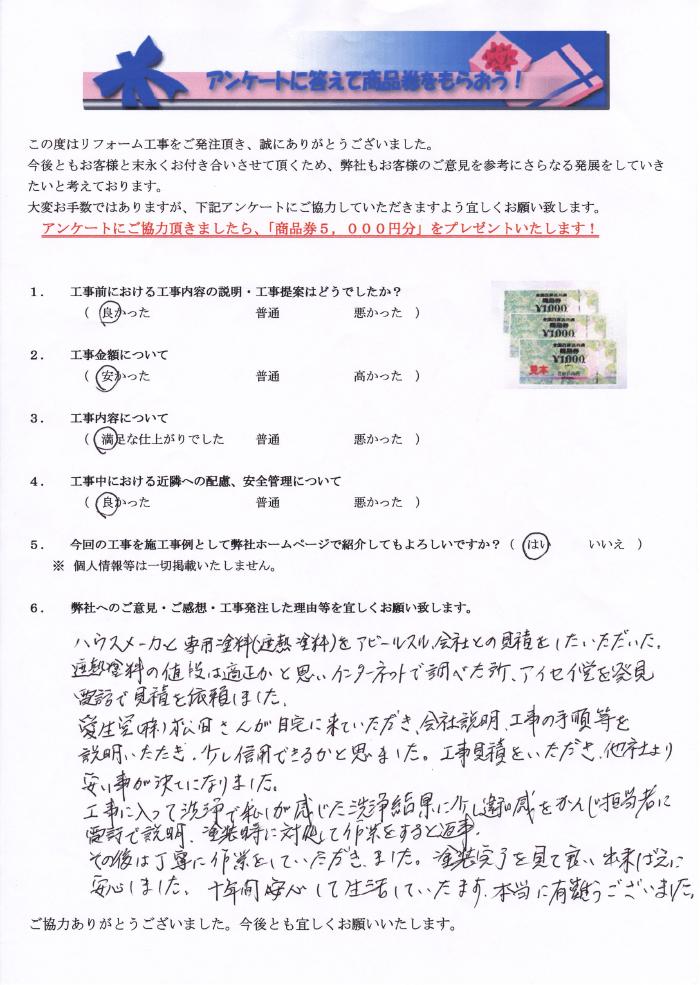 アンケートに答えて商品券をもらおう！
この度はリフォーム工事をご発注頂き、誠にありがとうございました。
今後ともお客様と末永くお付き合いさせて頂くため、弊社もお客様のご意見を参考にさらなる発展をしていき
たいと考えております。
大変お手数ではありますが、下記アンケートにご協力していただきますよう宜しくお願い致します。
アンケートにご協力頂きましたら、「商品券５，０００円分」をプレゼントいたします！
１．　工事前における工事内容の説明・工事提案はどうでしたか？
（　良かった　　普通　　悪かった　）
¥1,000
¥1,000
¥1,000
見本
２．　工事金額について
（　安かった　　普通　　高かった　）
３．　工事内容について
（　満足な仕上がりでした　　普通　　悪かった　）
４．　工事中における近隣への配慮、安全管理について
（　良かった　　普通　　悪かった　）
５．　今回の工事を施工事例として弊社ホームページで紹介してもよろしいですか？（　はい　　いいえ　）
※　個人情報等は一切掲載いたしません。
６．　弊社へのご意見・ご感想・工事発注した理由等を宜しくお願い致します。
ハウスメーカと専用塗料(遮熱塗料)をアピールスル会社との見積をしたいただいた。
遮熱塗料の値段は適正かと思いインターネットで調べた所、アイセイ堂を発見
電話で見積を依頼しました。
愛生堂(株)松田さんが自宅に来ていただき、会社説明、工事の手順等を
説明いただき、少し信用できるかと思ました。工事見積をいただき、他社より
安い事が決てになりました。
工事に入って洗浄で私しが感じた洗浄結果に少し違和感をかんじ担当者に
電話で説明、塗装時に対処して作業をすると返事。
その後は丁寧に作業をしていただきました。塗装完了を見て良い出来ばえに
安心しました。十年間安心して生活していたます。本当に有難うございました。
ご協力ありがとうございました。今後とも宜しくお願いいたします。